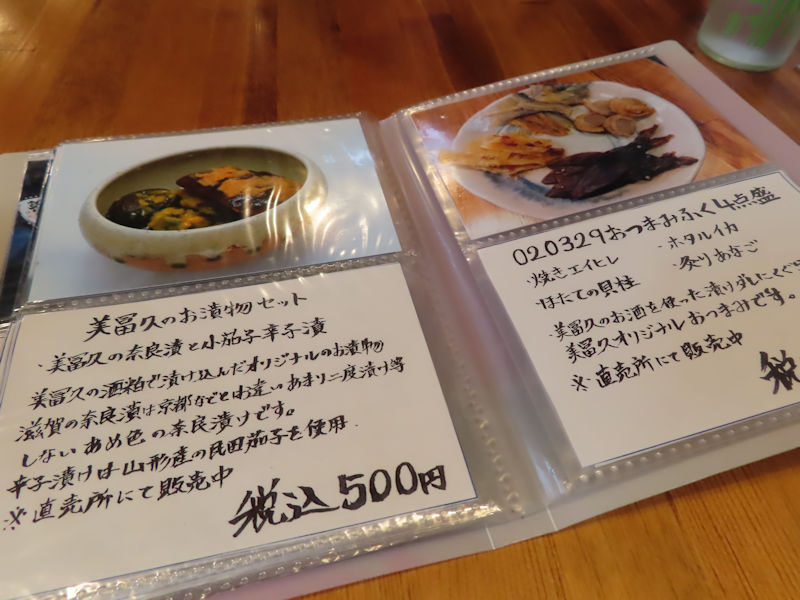 美冨久のお漬物セット
・美冨久の奈良漬と小茄子辛子漬
美冨久の酒粕で漬け込んだオリジナルのお漬物
滋賀の奈良漬は京都などとお違いあまり二度漬け等
しないあめ色の奈良漬けです。
辛子漬けは山形産の民田茄子を使用.
※直売所にて販売中
税込500円
020329おつまみふく4点盛
・焼きエイヒレ ・ホタルイカ
・ほたての貝柱 ・炙りあなご
・美冨久のお酒を使った漬りダレにくぐ
美冨久オリジナルおつまみです。
※直売所にて販売中
税